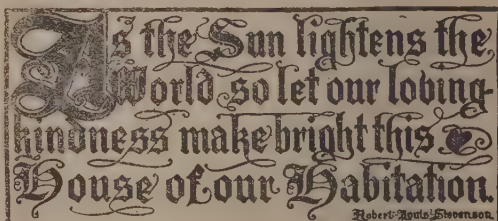 As the Sun lightens the
World so let our loving-
kindness make bright this
House of our Habitation.
Robert Louis Stevenson